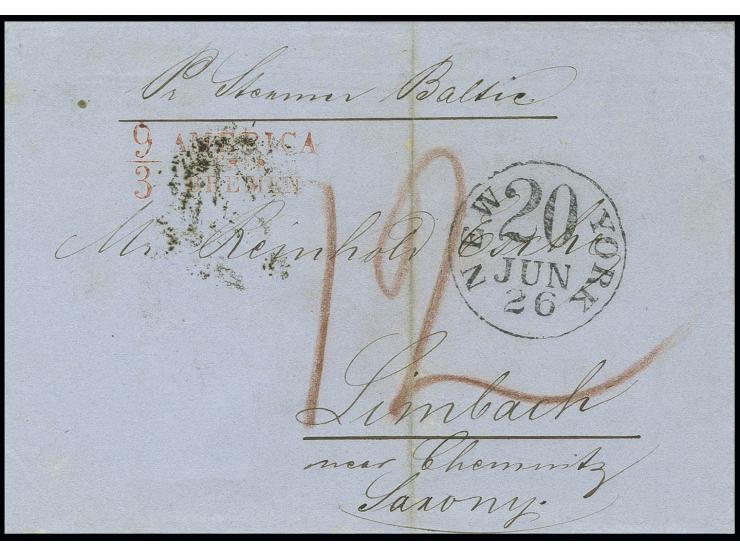 Pr Steamer Baltic
9/3
AMERICA
BREMEN
12
NEW YORK
20
JUN
26
Mr. Reinhold Esche
Limbach
near Chemnitz
Saxony.